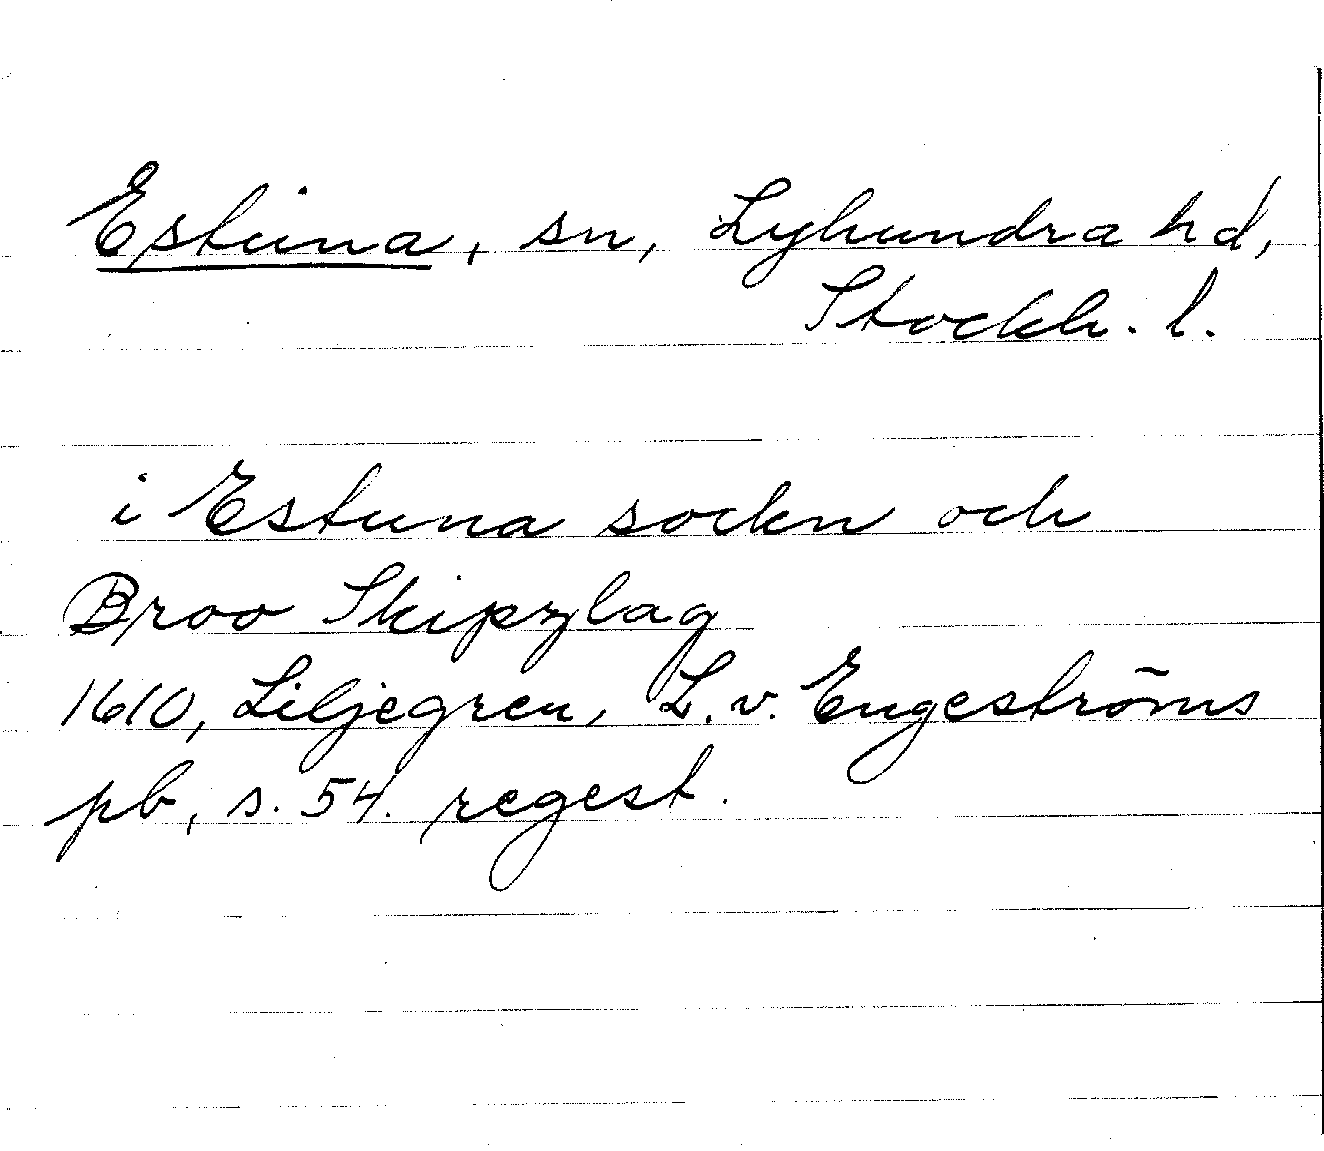 Estuna, sn, Lyhundra hd,
Stockh. l.
i Estuna sockn och
Broo Skipzlag
1610, Liljegren, L. v. Engeströms
pb, s. 54. regest.